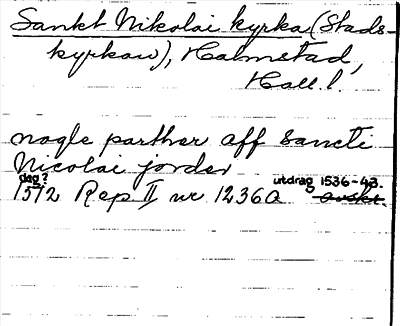 Sankt Nikolai kyrka (Stads-
kyrkan), Halmstad,
Hall. l.
nogle parther aff sancti
Nicolai jorder
dag?
1512 Rep. II nr 12360 utdrag 1536-43.
avskr.